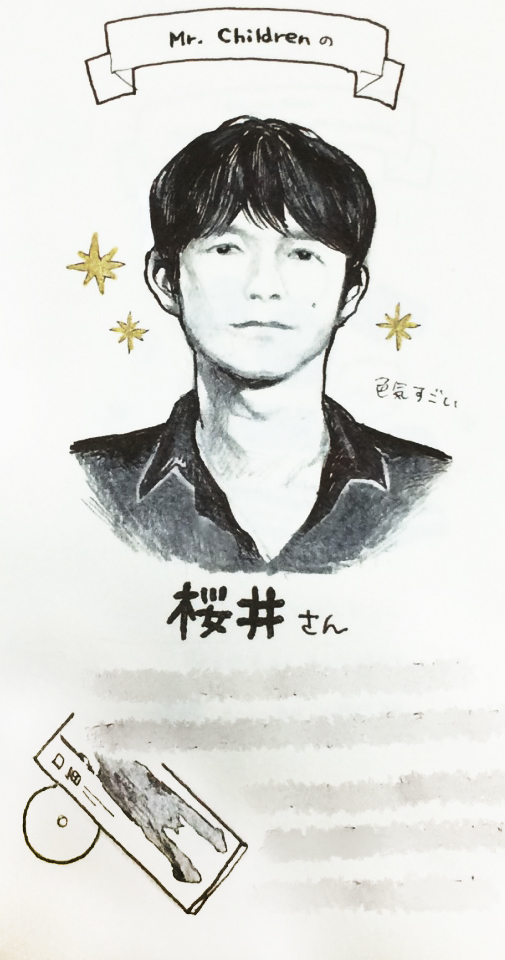 Mr. Children の
色気すごい
桜井さん